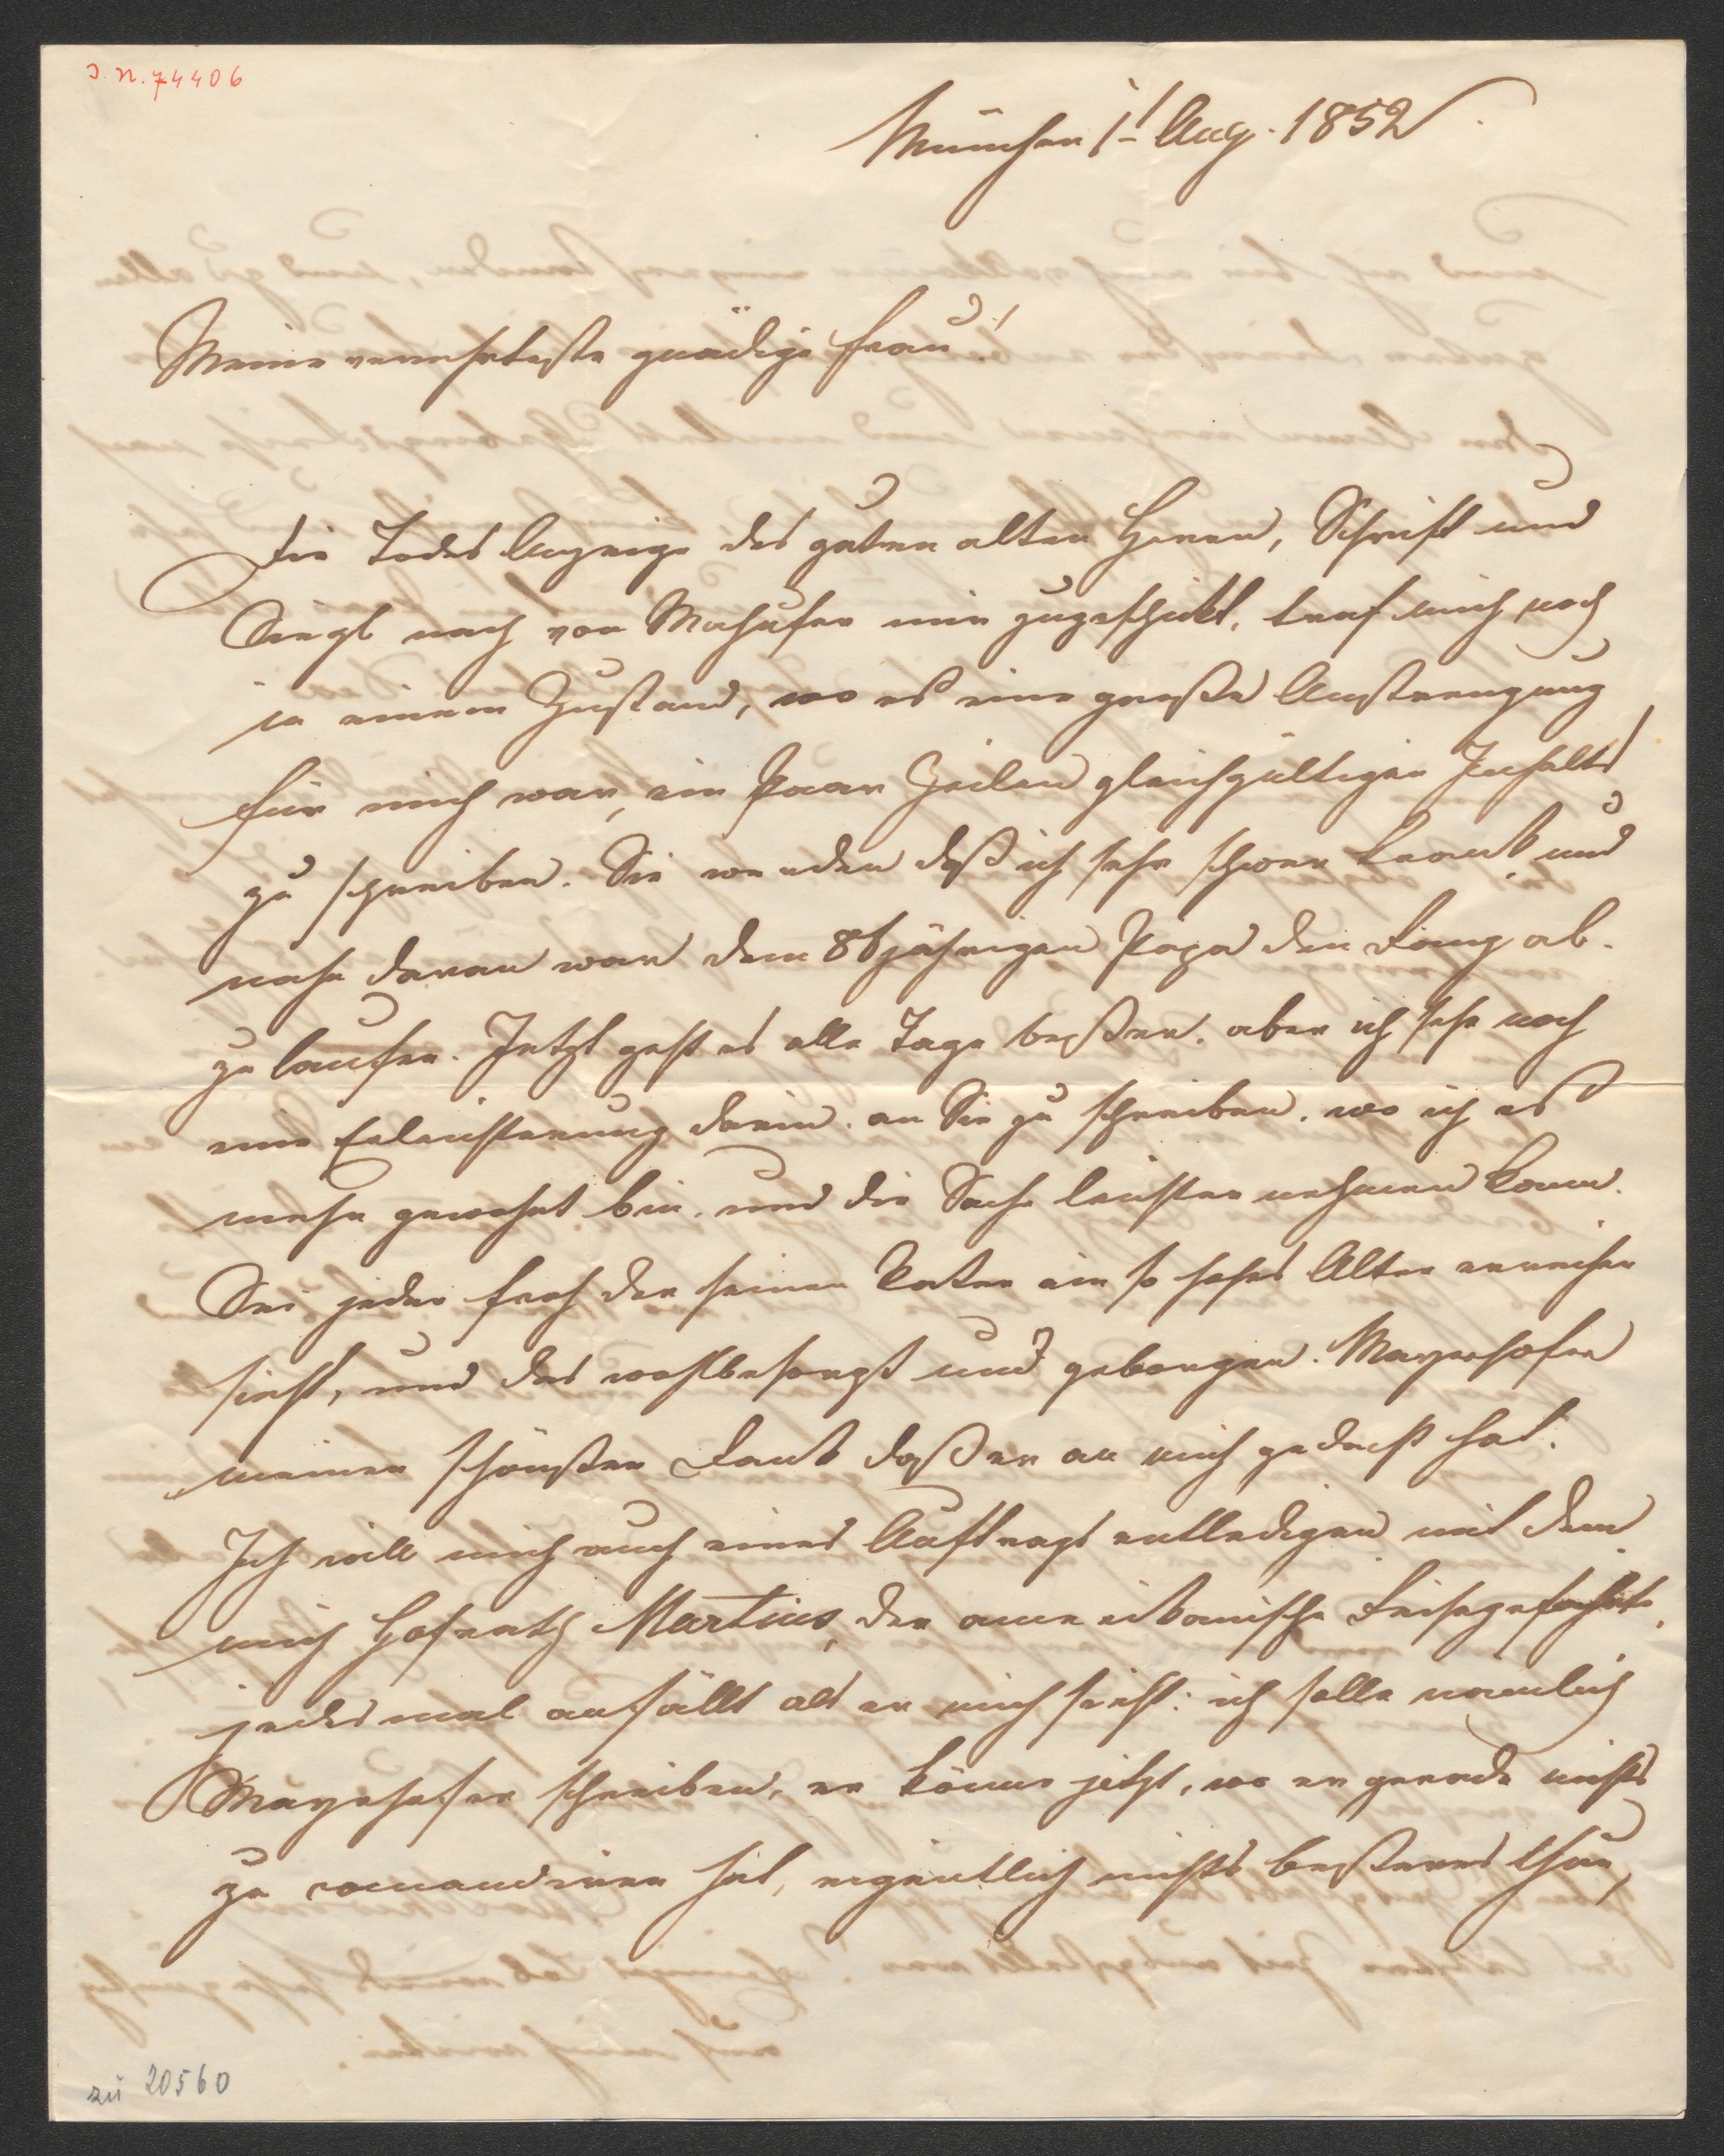 J.N. 74406
München 1t Aug. 1852
Meine verehrteste gnädige Frau!
Die Todes Anzeige des guten alten Herrn, Schrift und
Siegl nach von Mayhofer mir zugeschikt, traf mich noch
in einem Zustand, wo es eine große Anstrengung
für mich war, ein Paar Zeilen gleichgültigen Inhalts
zu schreiben. Sie wo uden daß ich sehr schwer krank und
nahe daran war dem 86jährigen Papa den Rang ab-
zulaufen. Jetzt geht es alle Tage beßer. aber ich sehe noch
eine Erleichterung darin. an Sie zu schreiben. wo ich es
mehr gewohnt bin. und die Sache leichter nehmen kann.
Sei jeder froh der seinen Vater ein so hohes Alter erreichen
sieht, und das wohlbesorgt und geborgen. Mayerhofer
meinen schönsten Dank daß er an mich gedacht hat.
Ich will mich auch eines Auftrags entledigen mit dem
mich Hofrath Martius, der amerikanische Reisegefährte,
jedesmal anfällt als er mich sieht: ich solle namlich
Mayrhofer schreiben, er könne jetzt, wo er gerade nichts
zu comandiren hat, eigentlich nichts beßeres thun,
zu 20560